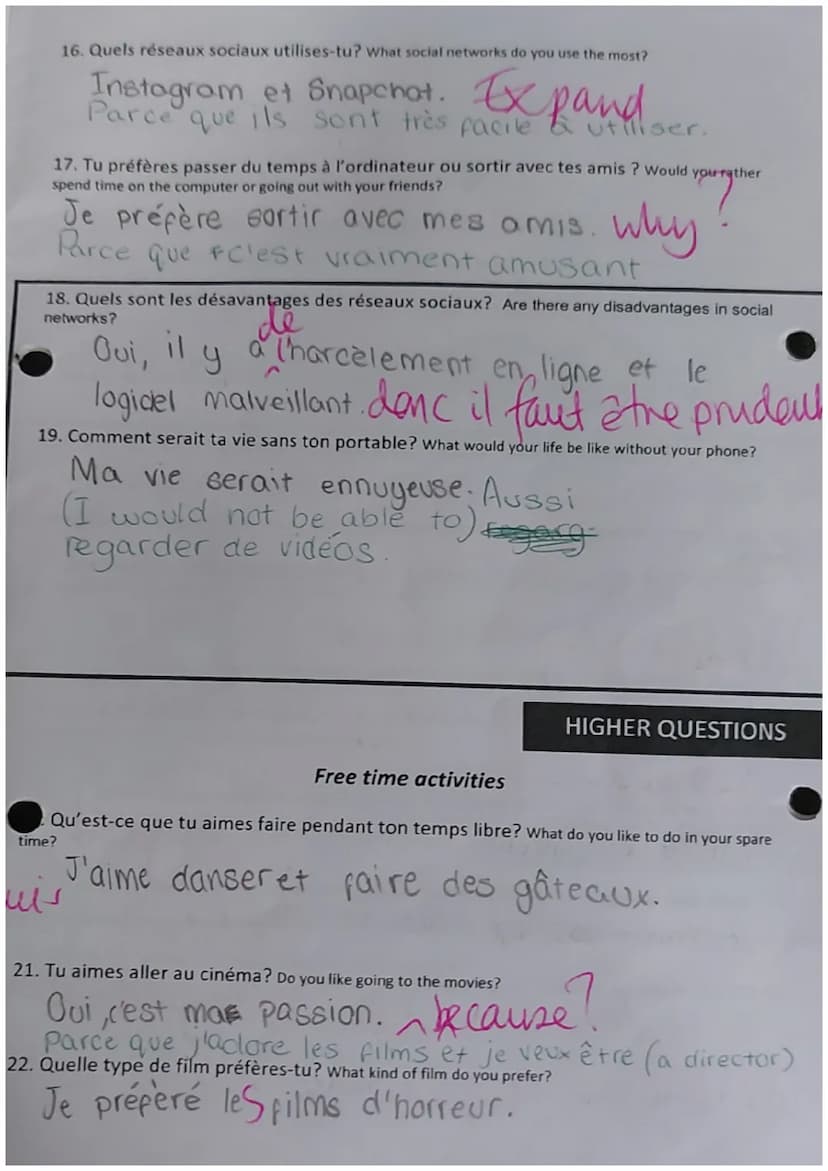 16. Quels réseaux sociaux utilises-tu? What social networks do you use the most?
Instagram et Snapchat. Expand
Parce que ils sont très facile à utiliser.
17. Tu préfères passer du temps à l'ordinateur ou sortir avec tes amis ? Would you rather
spend time on the computer or going out with your friends?
Je préfère sortir avec mes amis. Why?
Parce que c'est vraiment amusant
18. Quels sont les désavantages des réseaux sociaux? Are there any disadvantages in social
networks?
de
Oui, il y a l'harcèlement en ligne et le
logiciel malveillant. donc il faut être prudent
19. Comment serait ta vie sans ton portable? What would your life be like without your phone?
Ma vie serait ennuyeuse. Aussi
(I would not be able to)
regarder de vidéos.
HIGHER QUESTIONS
Free time activities
Qu'est-ce que tu aimes faire pendant ton temps libre? What do you like to do in your spare
time?
J'aime danser et faire des gâteaux.
21. Tu aimes aller au cinéma? Do you like going to the movies?
Oui, c'est ma passion. because?
Parce que j'adore les films et je veux être (a director)
22. Quelle type de film préfères-tu? What kind of film do you prefer?
Je préfèré les films d'horreur.